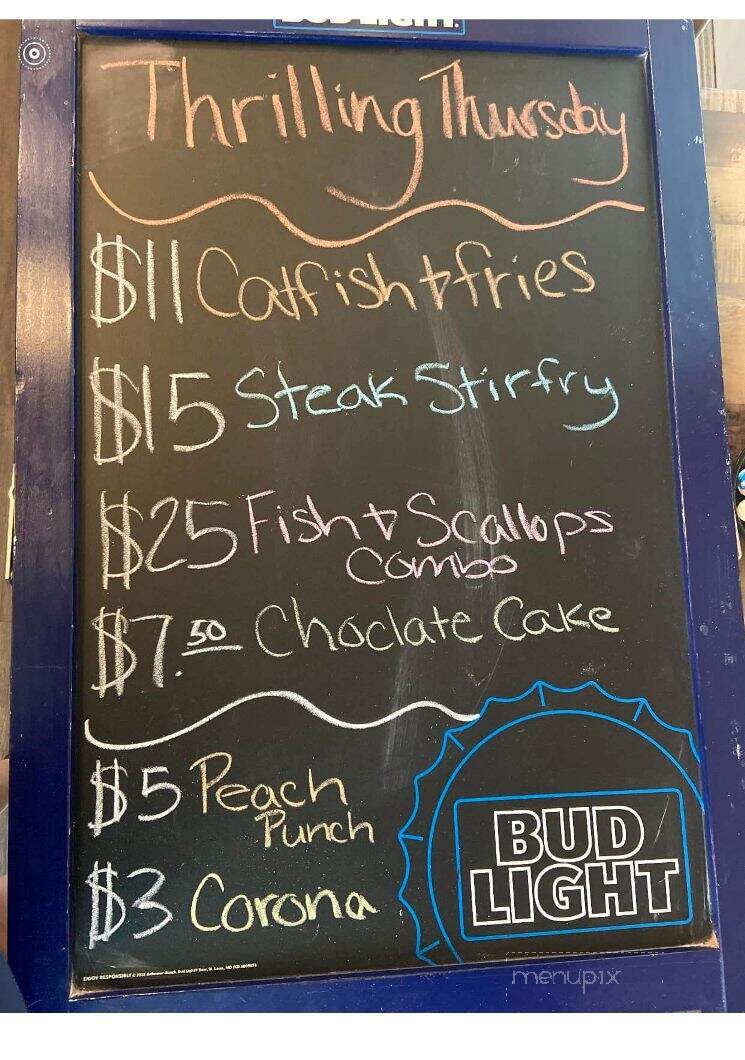 BUD LIGHT.
Thrilling Thursday
$11 Catfish + fries
$15 Steak Stirfry
$25 Fish + Scallops
Combo
$7.50 Choclate Cake
$5 Peach
Punch
$3 Corona
BUD
LIGHT
ENJOY RESPONSIBLY
menupix